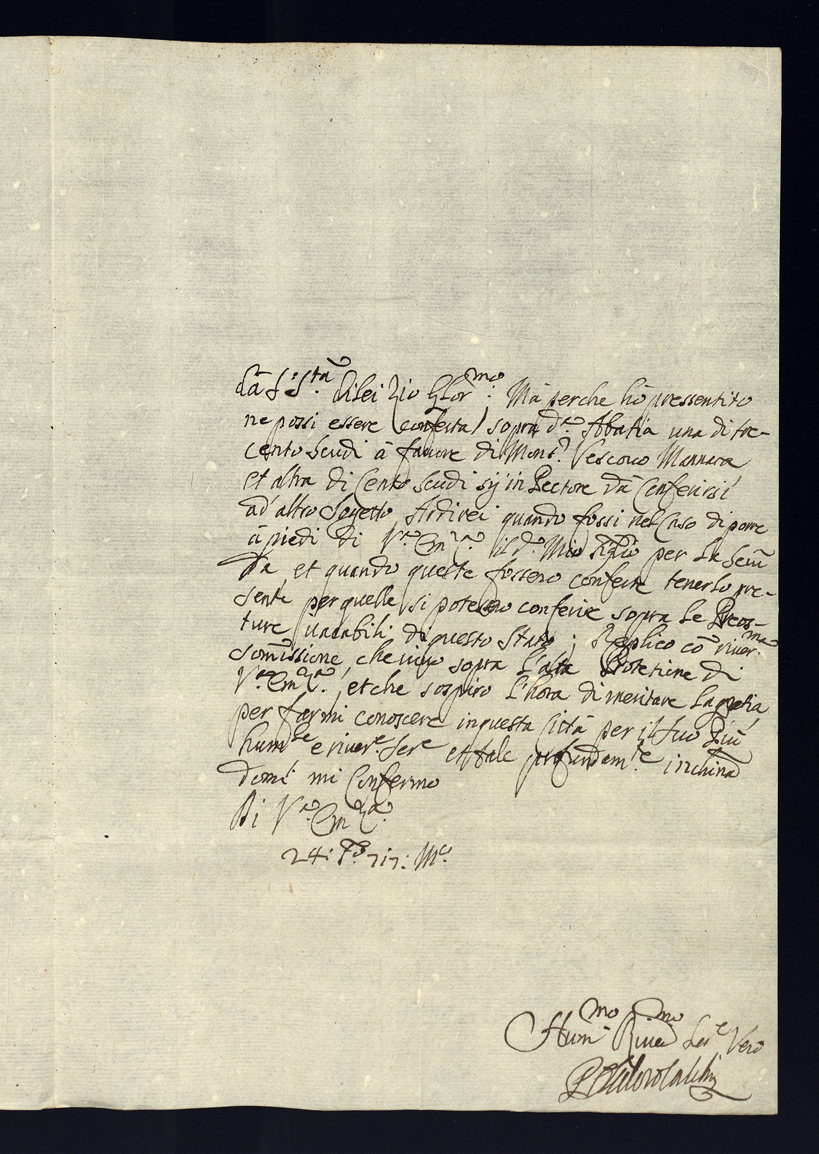 dà S. S.tà di lei Zio Glor.mo: Mà perche hò pressentito
ne possi essere conferta sopra d.a Abatia una di tre-
cento Scudi à favore di Mons.r Vescovo Mannara
et altra di Cento Scudi sij in Pectore dà Conferirsi
ad' altro Sogetto Ardirei quando fossi nel Caso di porre
à piedi di V.a Em.za il d.o Mio per la
da et quando queste fossero conferte tenerlo pre-
sente per quelle si potessero conferire sopra le
ture vacabili di questo Stato; Replico cõ river.ma
Somissione, che vivo sopra l'alta Protetione di
V.a Em.za, et che sospiro l'hora di meritare la gratia
per farmi conoscere in questa Città per il suo più
hum.le e river.e Ser.e et tale profundam.te inchinã
domi mi Confermo
Di V.a Em.za
24: 717: M.o
Hum.mo River.mo Ser.e Vero